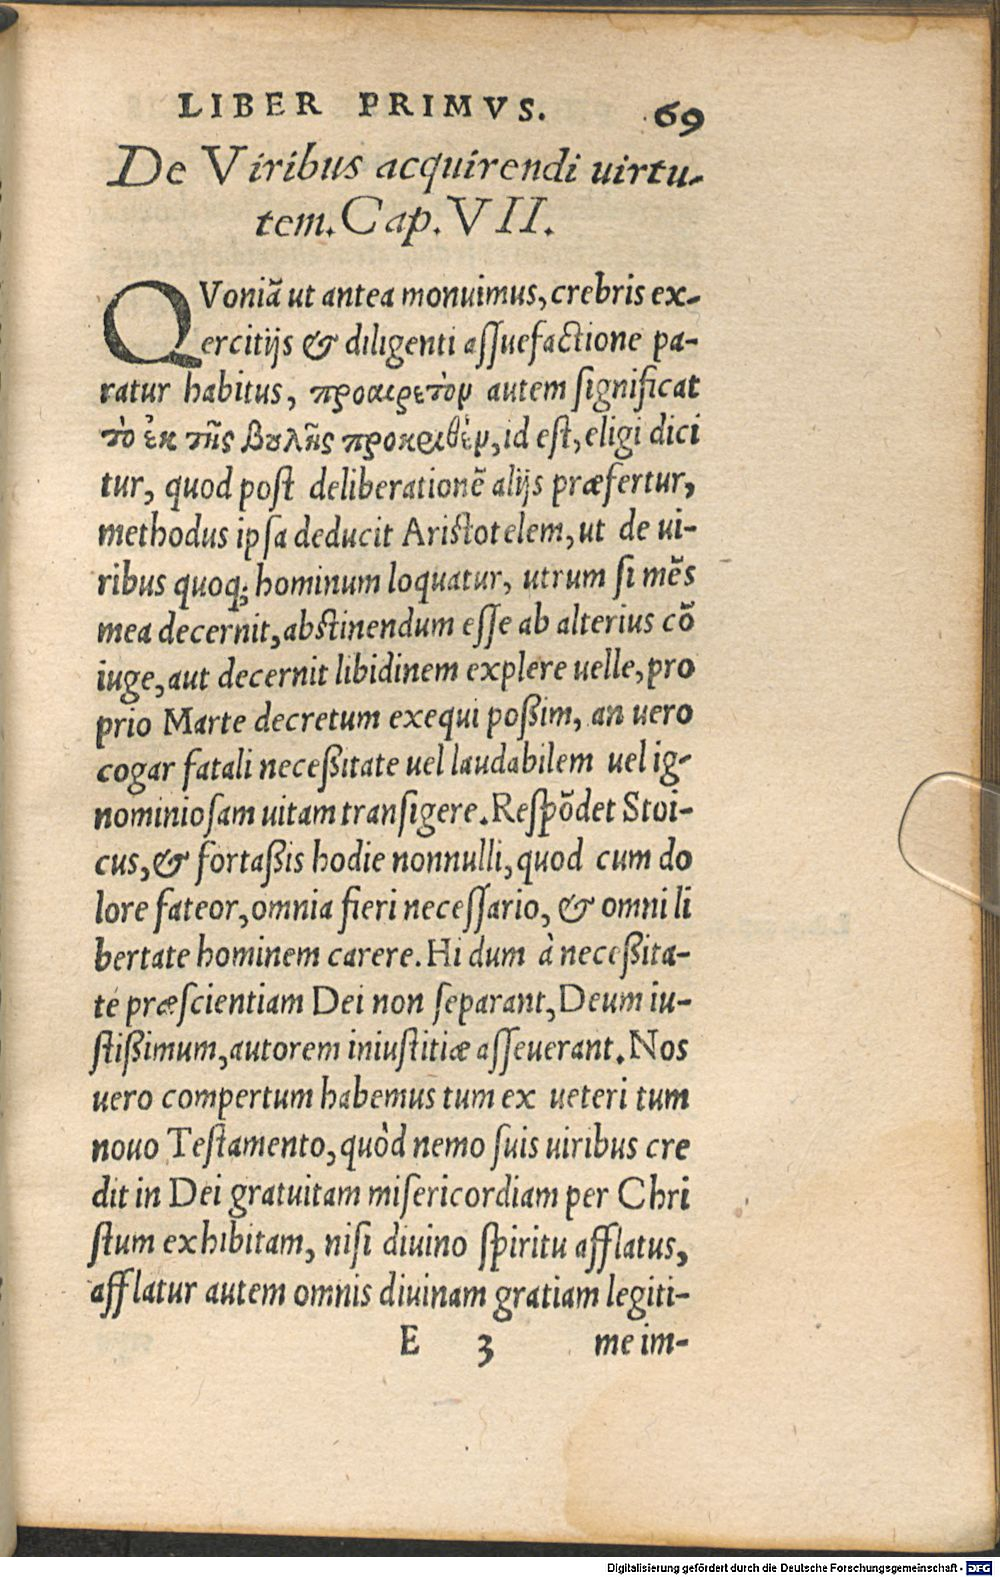 LIBER PRIMVS. 69
De Viribus acquirendi uirtu-
tem. Cap. VII.
QVoniã ut antea monuimus, crebris ex-
ercitijs & diligenti aſſuefactione pa-
ratur habitus, προαιρετὸν autem ſignificat
τὸ ἐκ τῆς βουλῆς προκριθὲν, id eſt, eligi dici
tur, quod poſt deliberationẽ alijs præfertur,
methodus ipſa deducit Ariſtotelem, ut de ui-
ribus quoq; hominum loquatur, utrum ſi mẽs
mea decernit, abſtinendum eſſe ab alterius cõ
iuge, aut decernit libidinem explere uelle, pro
prio Marte decretum exequi poßim, an uero
cogar fatali neceßitate uel laudabilem uel ig-
nominioſam uitam tranſigere. Reſpõdet Stoi-
cus, & fortaßis hodie nonnulli, quod cum do
lore fateor, omnia fieri neceſſario, & omni li
bertate hominem carere. Hi dum à neceßita-
te præſcientiam Dei non ſeparant, Deum iu-
ſtißimum, autorem iniuſtitiæ aſſeuerant. Nos
uero compertum habemus tum ex ueteri tum
nouo Teſtamento, quòd nemo ſuis uiribus cre
dit in Dei gratuitam miſericordiam per Chri
ſtum exhibitam, niſi diuino ſpiritu afflatus,
afflatur autem omnis diuinam gratiam legiti-
E 3 me im-
Digitalisierung gefördert durch die Deutsche Forschungsgemeinschaft - DFG